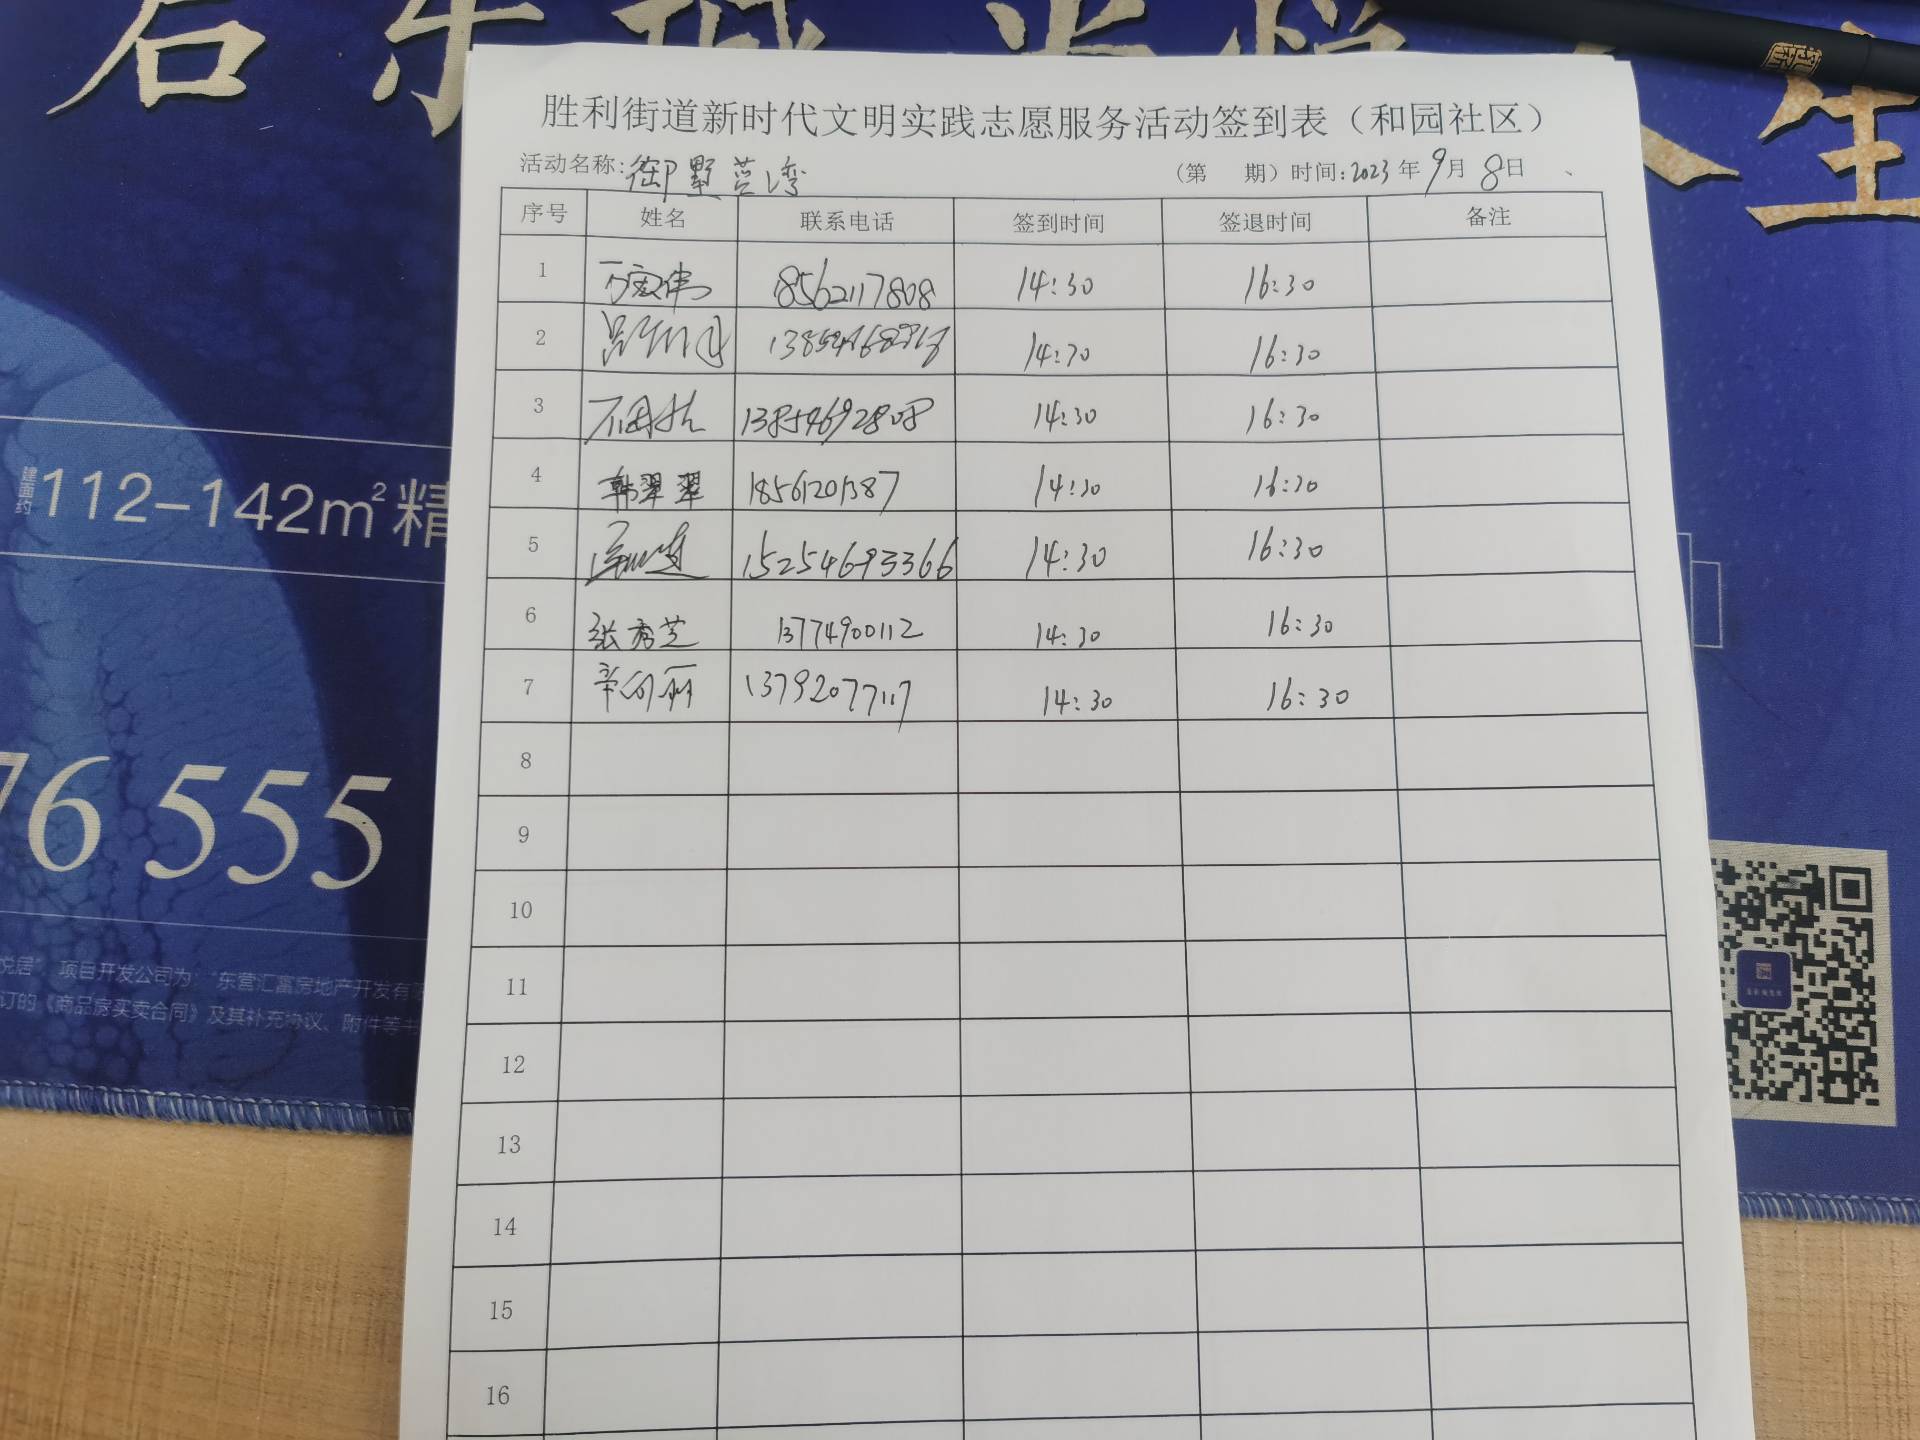 胜利街道新时代文明实践志愿服务活动签到表（和园社区）
活动名称:御墅莒湾 （第 期）时间:2023年9月8日
序号 姓名 联系电话 签到时间 签退时间 备注
1 18562117808 14:30 16:30
2 14:30 16:30
3 13854692808 14:30 16:30
4 韩翠翠 18561201387 14:30 16:30
5 15254693366 14:30 16:30
6 张秀芝 13774900112 14:30 16:30
7 13792077117 14:30 16:30
8
9
10
11
12
13
14
15
16
建面约112-142m²精
76 555
悦居”，项目开发公司为：“东营汇富房地产开发有限
订的《商品房买卖合同》及其补充协议、附件等